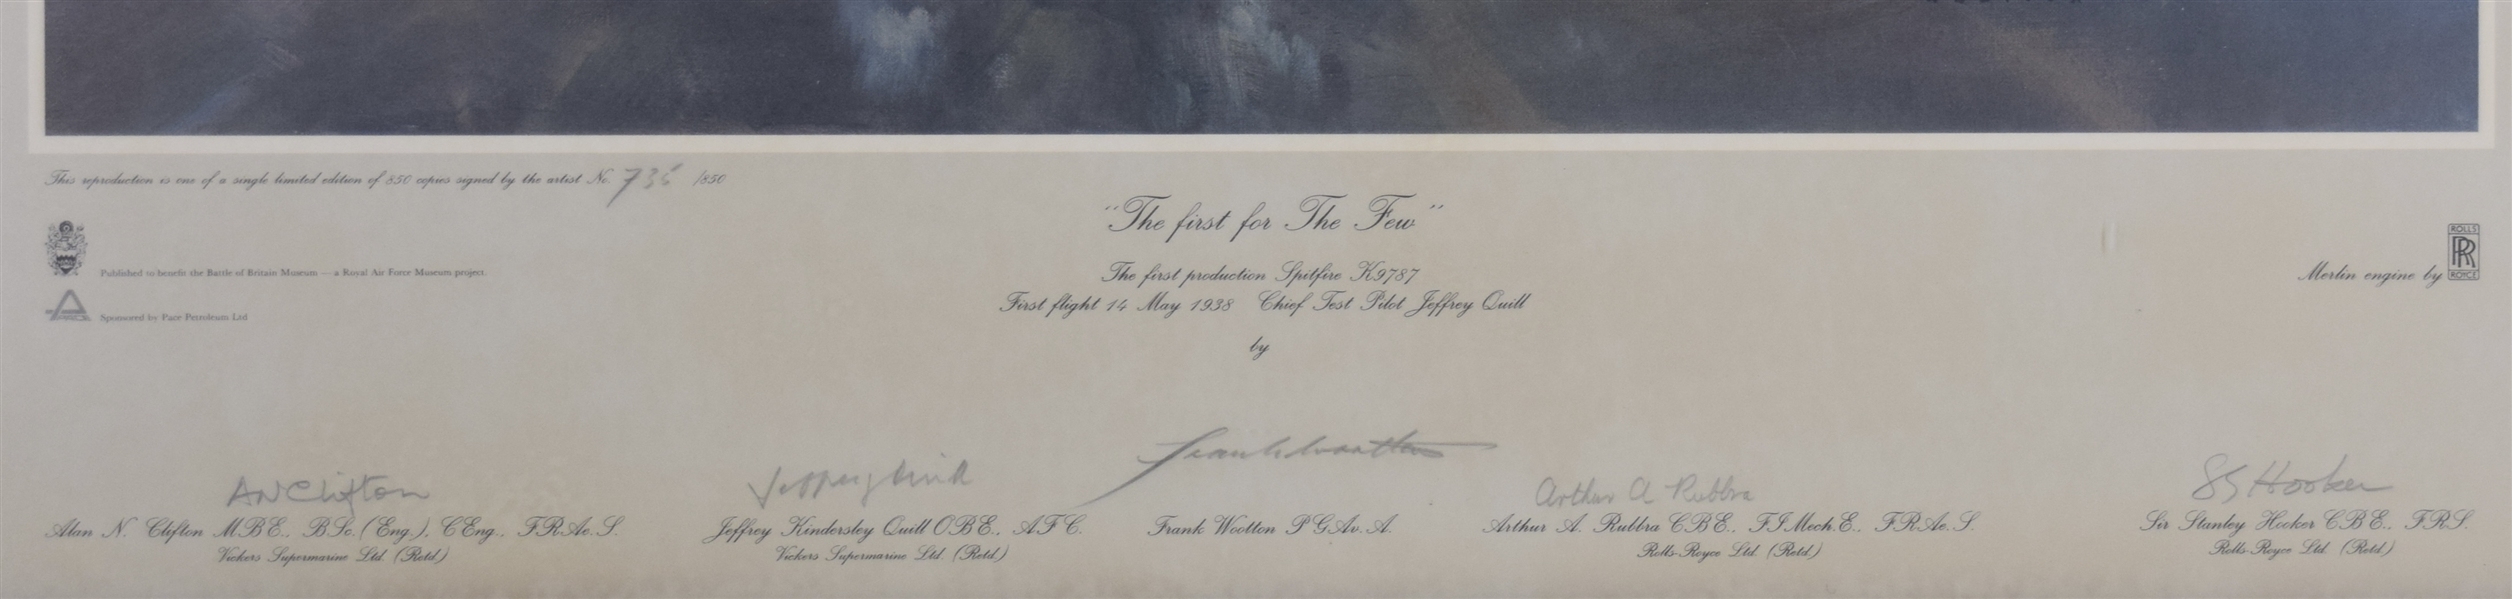 This reproduction is one of a single limited edition of 850 copies signed by the artist No. 735 /850
"The first for The Few"
The first production Spitfire K9787
First flight 14 May 1938 Chief Test Pilot Jeffrey Quill
by
Published to benefit the Battle of Britain Museum — a Royal Air Force Museum project.
Sponsored by Pace Petroleum Ltd
Merlin engine by
ROLLS
RR
ROYCE
AN Clifton
Jeffrey Quill
Frank Wootton
Arthur A Rubbra
SG Hooker
Alan N. Clifton M.B.E., B.Sc.(Eng.), C.Eng., F.R.Ae.S.
Vickers Supermarine Ltd. (Retd.)
Jeffrey Kindersley Quill O.B.E., A.F.C.
Vickers Supermarine Ltd. (Retd.)
Frank Wootton P.G.Av.A.
Arthur A. Rubbra C.B.E., F.I.Mech.E., F.R.Ae.S.
Rolls-Royce Ltd. (Retd.)
Sir Stanley Hooker C.B.E., F.R.S.
Rolls-Royce Ltd. (Retd.)